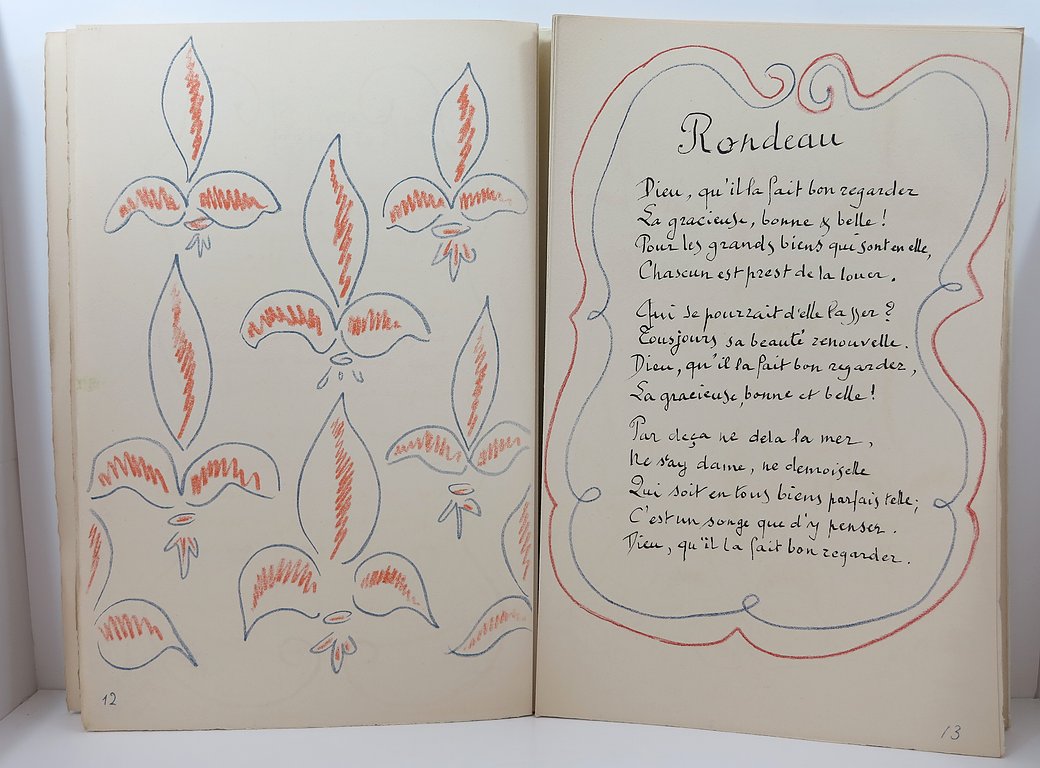 12
Rondeau
Dieu, qu'il la fait bon regarder
La gracieuse, bonne & belle !
Pour les grands biens qui sont en elle,
Chascun est prest de la louer.
Qui se pourrait d'elle lasser ?
Tousjours sa beauté renouvelle.
Dieu, qu'il la fait bon regarder,
La gracieuse, bonne et belle !
Par deça ne dela la mer,
Ne say dame, ne demoiselle
Qui soit en tous biens parfais telle ;
C'est un songe que d'y penser.
Dieu, qu'il la fait bon regarder.
13